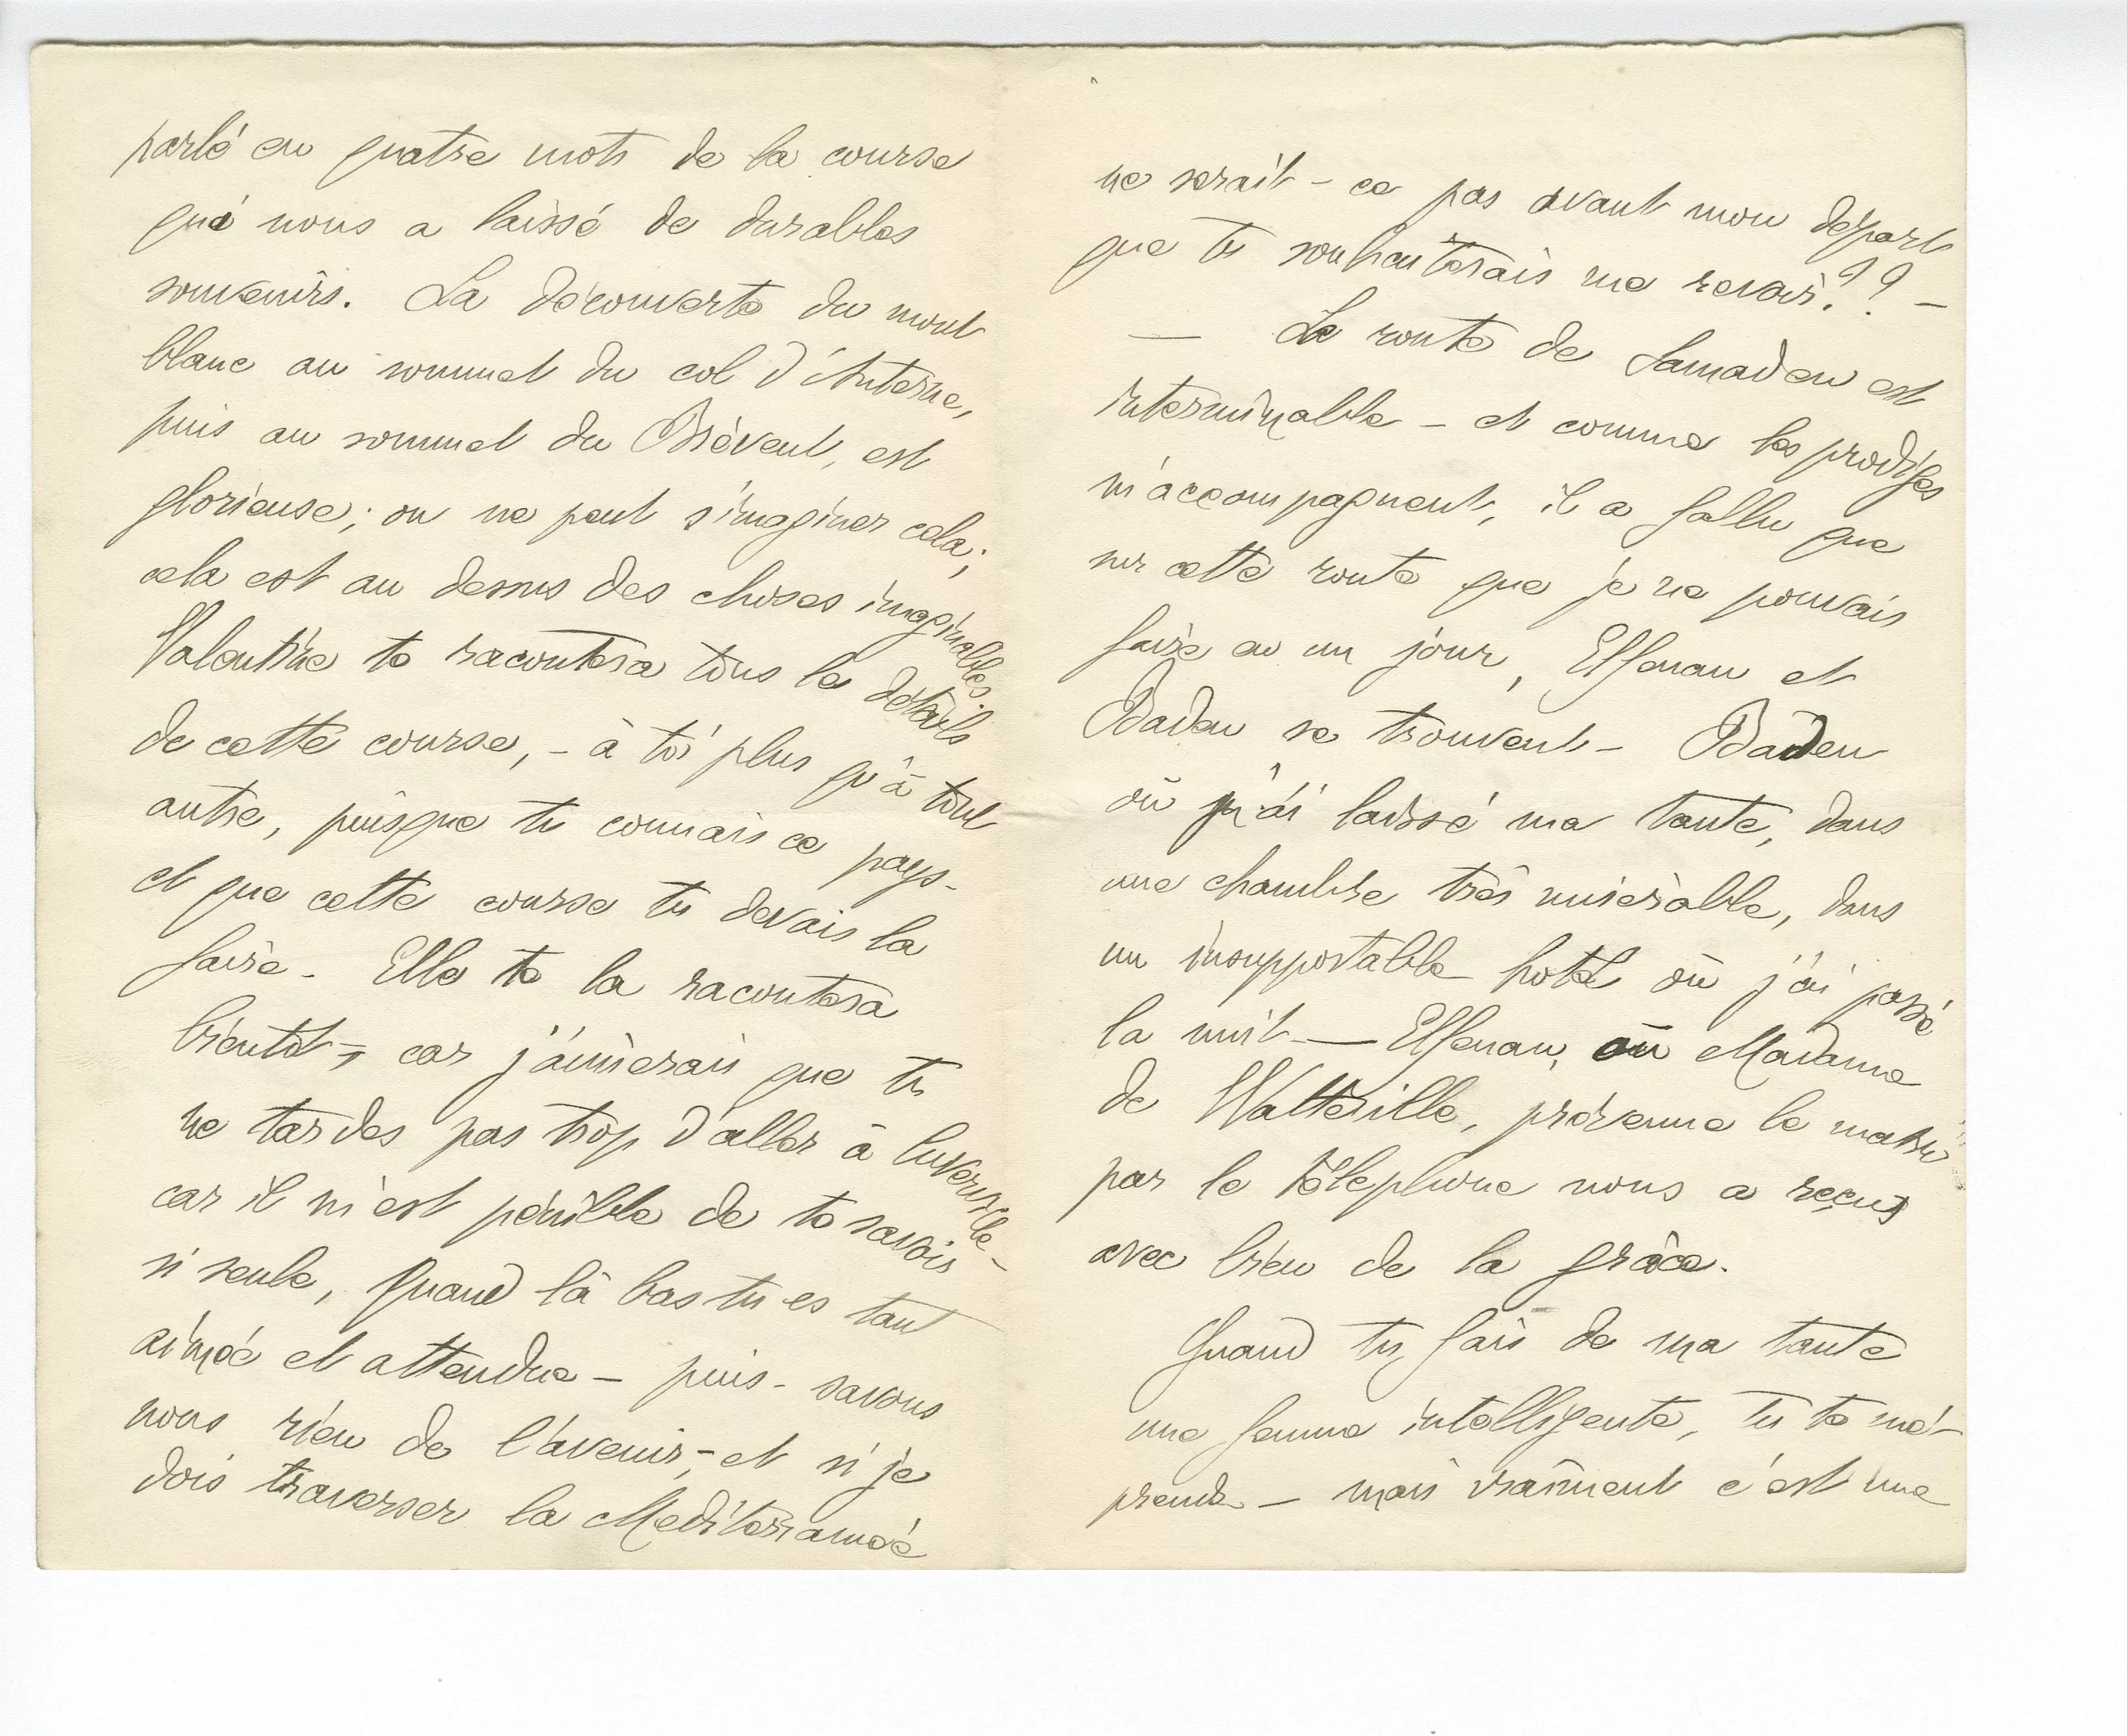 parlé en quatre mots de la course
qui nous a laissé de durables
souvenirs. La découverte du mont
blanc au sommet du col d'Anterne,
puis au sommet du Brévent, est
glorieuse; on ne peut s'imaginer cela;
cela est au dessus des choses imaginables.
Valentine te racontera tous les détails
de cette course, - à toi plus qu'à tout
autre, puisque tu connais ce pays -
et que cette course tu devais la
faire - Elle te la racontera
bientôt -, car j'aimerais que tu
ne tardes pas trop d'aller à
car il m'est pénible de te savoir
si seule, quand là bas tu es tant
aimée et attendue - puis - savons
nous rien de l'avenir, - et si je
dois traverser la Mediterannée
ne serait-ce pas avant mon départ
que tu souhaiterais me revoir?? -
— La route de Samaden est
interminable - et comme les prodiges
m'accompagnent, il a fallu que
sur cette route que je ne pouvais
faire en un jour, Elfenau et
Baden se trouvent - Baden
où j'ai laissé ma tante, dans
une chambre très misérable, dans
un insupportable hotel où j'ai passé
la nuit — Elfenau, où Madame
de Watteville, prévenue le matin
par le téléphone nous a reçus
avec bien de la grâce.
Quand tu fais de ma tante
une femme intelligente, tu te mé-
prends - mais vraiment c'est une